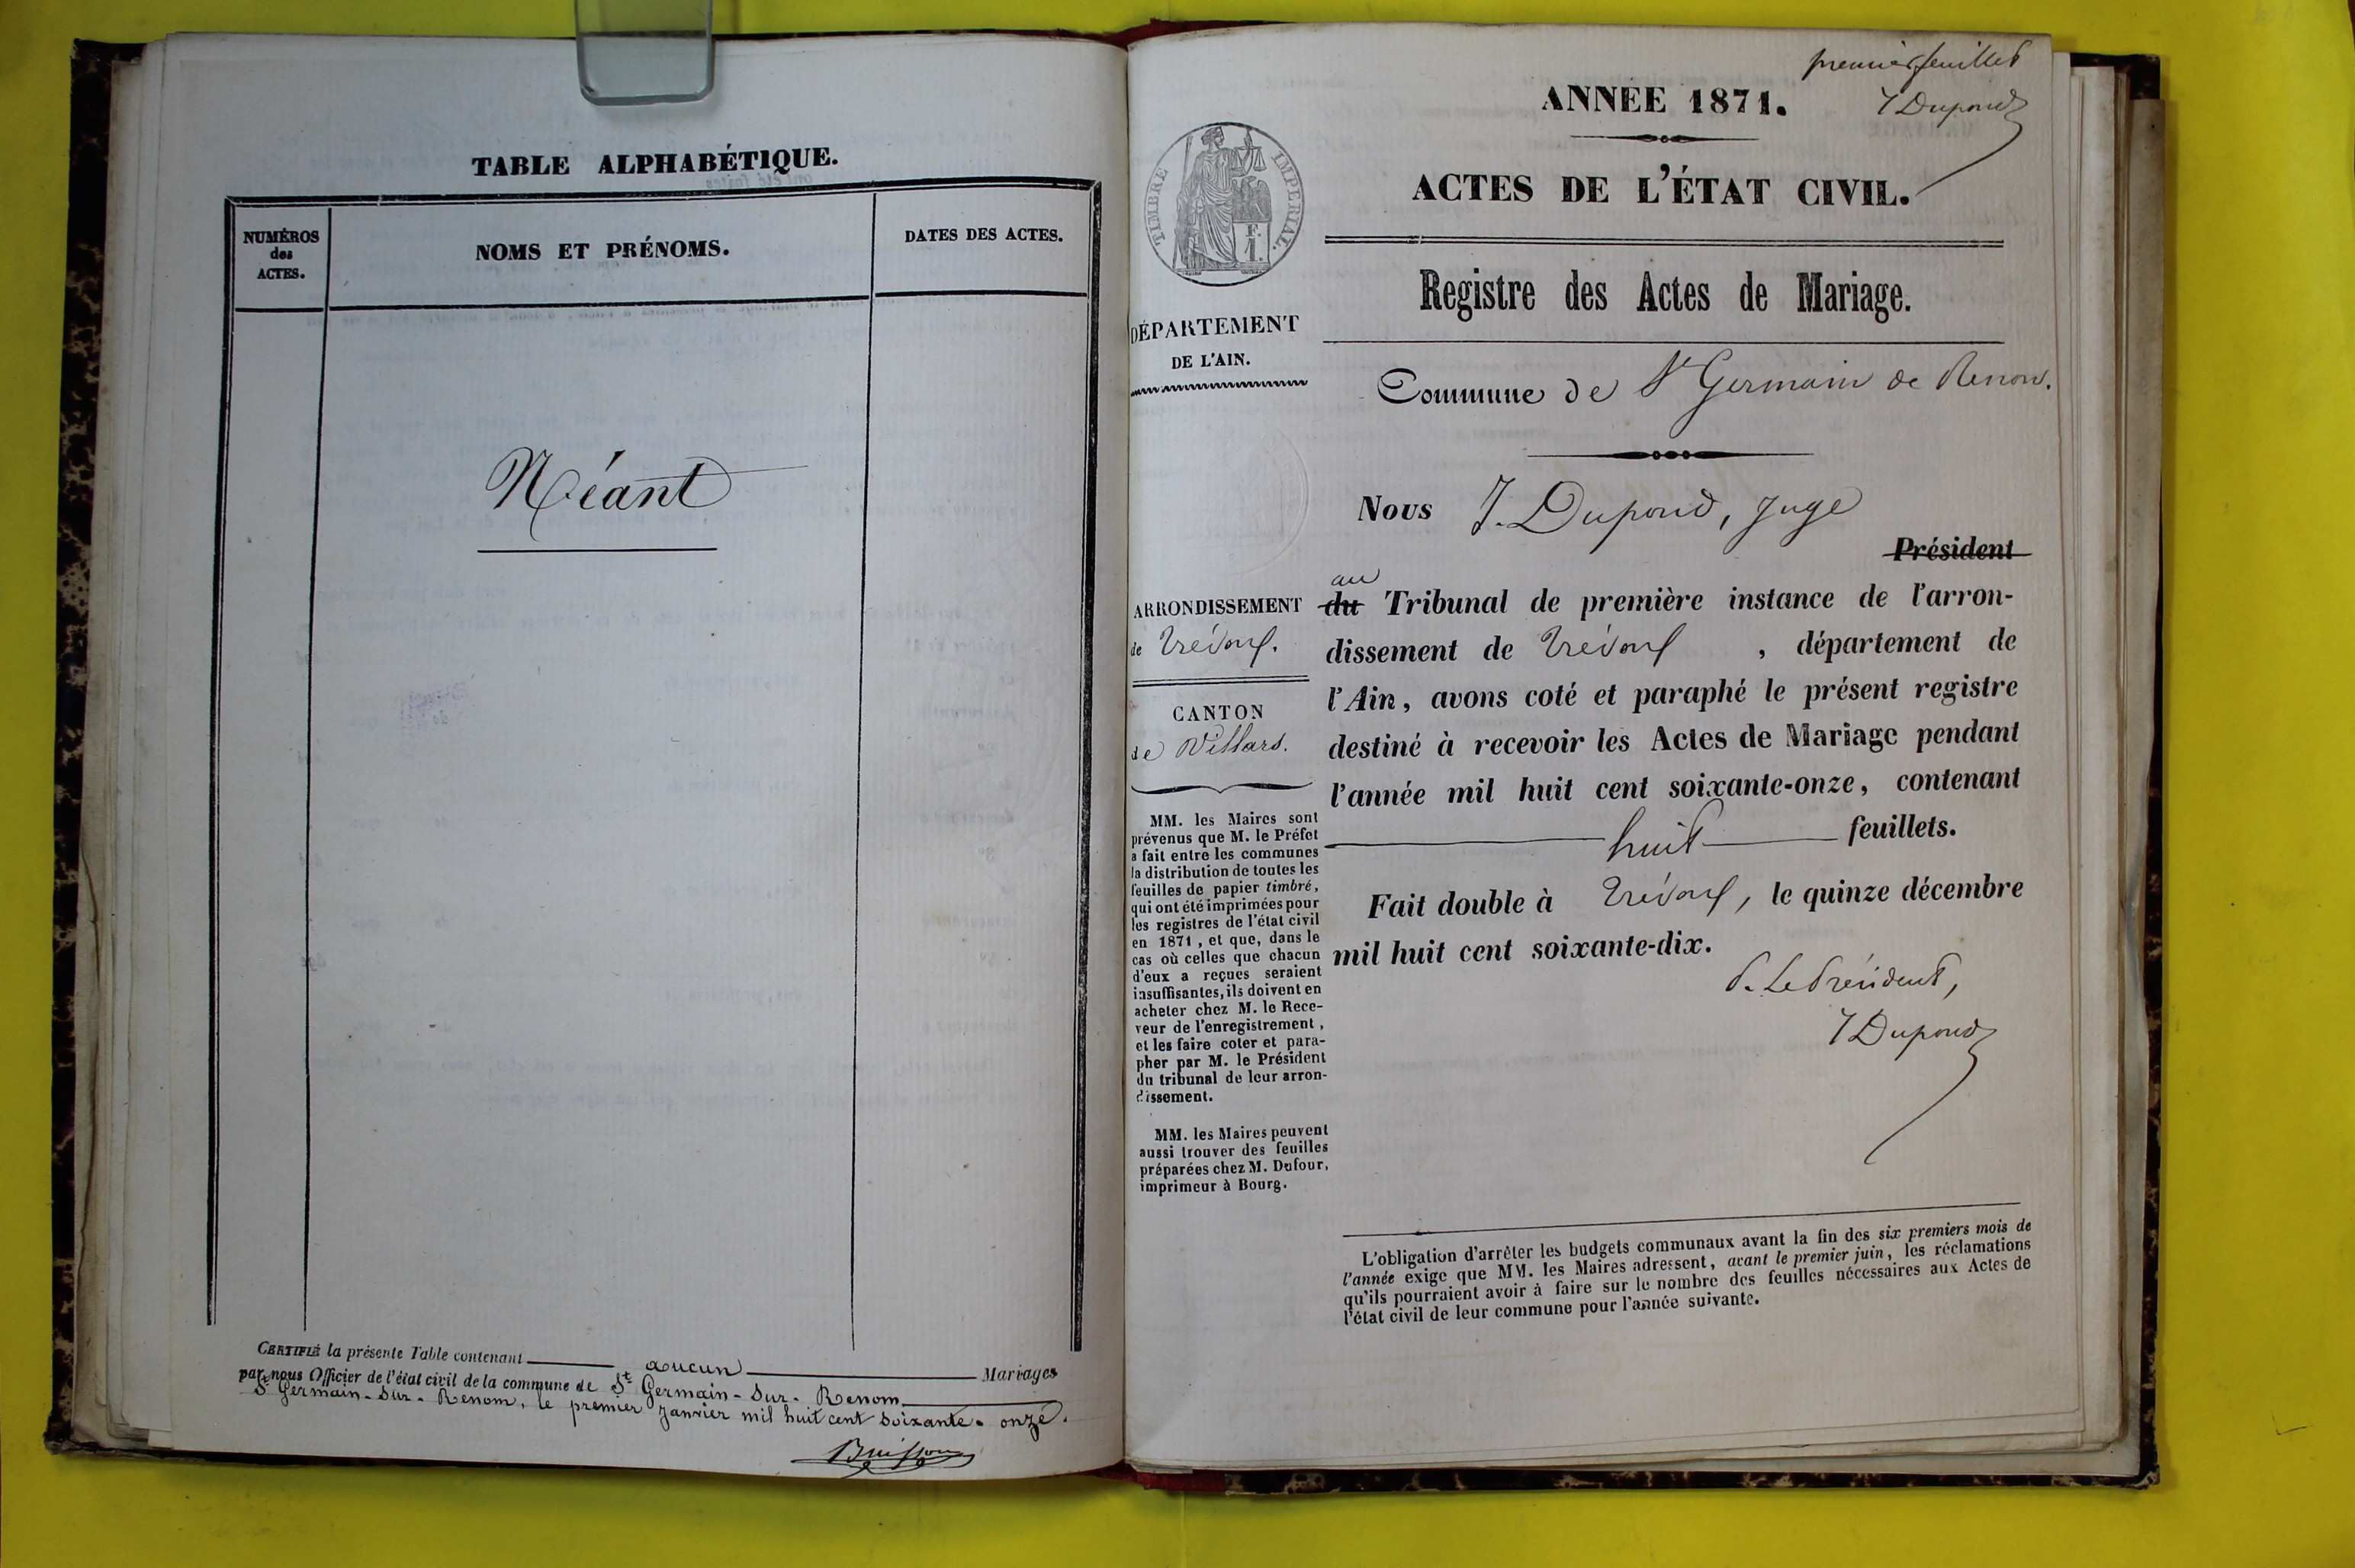 TABLE ALPHABÉTIQUE.
NUMÉROS
des
ACTES.
NOMS ET PRÉNOMS.
DATES DES ACTES.
Néant
CERTIFIÉ la présente Table contenant aucun Mariages
par nous Officier de l'état civil de la commune de St Germain-sur-Renom
St Germain-sur-Renom, le premier Janvier mil huit cent soixante-onze.
Buisson
premier feuillet
J Dupond
ANNÉE 1871.
ACTES DE L'ÉTAT CIVIL.
TIMBRE IMPÉRIAL.
F.
1.
Registre des Actes de Mariage.
DÉPARTEMENT
DE L'AIN.
Commune de St Germain de Renon.
Nous J. Dupond, Juge
Président
au
ARRONDISSEMENT
de Trévoux.
CANTON
de Villars.
MM. les Maires sont
prévenus que M. le Préfet
a fait entre les communes
la distribution de toutes les
feuilles de papier timbré,
qui ont été imprimées pour
les registres de l'état civil
en 1871, et que, dans le
cas où celles que chacun
d'eux a reçues seraient
insuffisantes, ils doivent en
acheter chez M. le Rece-
veur de l'enregistrement,
et les faire coter et para-
pher par M. le Président
du tribunal de leur arron-
dissement.
MM. les Maires peuvent
aussi trouver des feuilles
préparées chez M. Dufour,
imprimeur à Bourg.
du Tribunal de première instance de l'arron-
dissement de Trévoux, département de
l'Ain, avons coté et paraphé le présent registre
destiné à recevoir les Actes de Mariage pendant
l'année mil huit cent soixante-onze, contenant
huit feuillets.
Fait double à Trévoux, le quinze décembre
mil huit cent soixante-dix.
P. Le Président,
J Dupond
L'obligation d'arrêter les budgets communaux avant la fin des six premiers mois de
l'année exige que MM. les Maires adressent, avant le premier juin, les réclamations
qu'ils pourraient avoir à faire sur le nombre des feuilles nécessaires aux Actes de
l'état civil de leur commune pour l'année suivante.